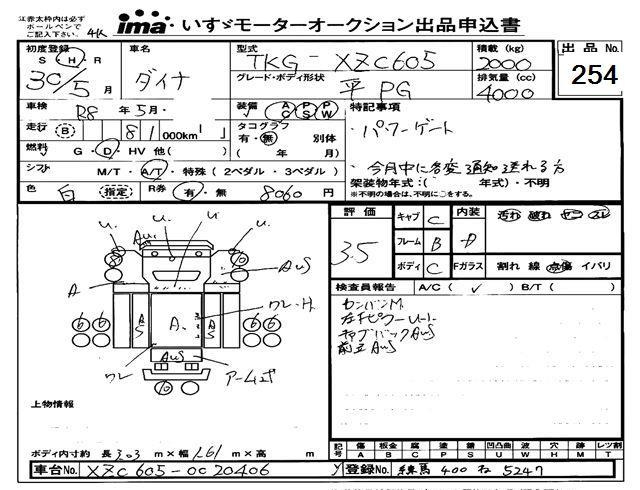 注.赤太枠内は必ず
ボールペンで
ご記入下さい。
ima いすゞモーターオークション出品申込書
初度登録 車名 型式 積載(kg) 出品No.
S・H TKG-XZC605 2000 254
30/5 月 ダイナ グレード・ボディ形状 排気量(cc)
平 PG 4000
車検 R8 年 5 月 装備 AC PS PW 特記事項
走行 B 81 000km タコグラフ 有・無 別体 ・パワーゲート
燃料 G・D・HV 他( ) ( 年 月)
シフト M/T・A/T・特殊(2ペダル・3ペダル) ・今月中に名変通知送れる方
架装物年式:( 年式)・不明
※不明の場合は、不明に○をする。
色 白 指定 R券 有・無 8060 円
評価 キャブ C 内装 汚れ 破れ ヤニ スレ
3.5 フレーム B D
ボディ C Fガラス 割れ 線 点傷 イバリ
検査員報告 A/C( ✓ ) B/T( )
キャブバックAuS
前立AuS
U. U. U.
Au.
A AuS
ワレ・H
A/S A. A/S
6 6 6 6
AuS
ワレ
10
上物情報
ボディ内寸約 長 3.03 m×幅 1.61 m×高 m
記号 傷 板金 腐 塗 錆 凹凸曲 波 穴 跡 レツ割
A B C P S U W H M T
車台No. XZC605-0020406 登録No. 練馬 400 ね 5247